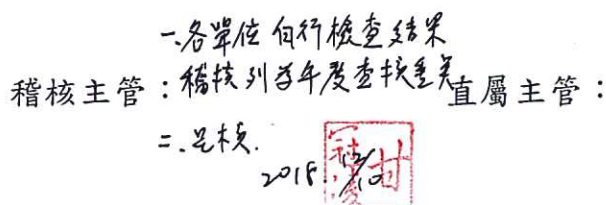 一、各單位自行檢查結果
稽核主管：稽核列為年度查核重點 直屬主管：
二、呈核.
2018. 12/10 甘